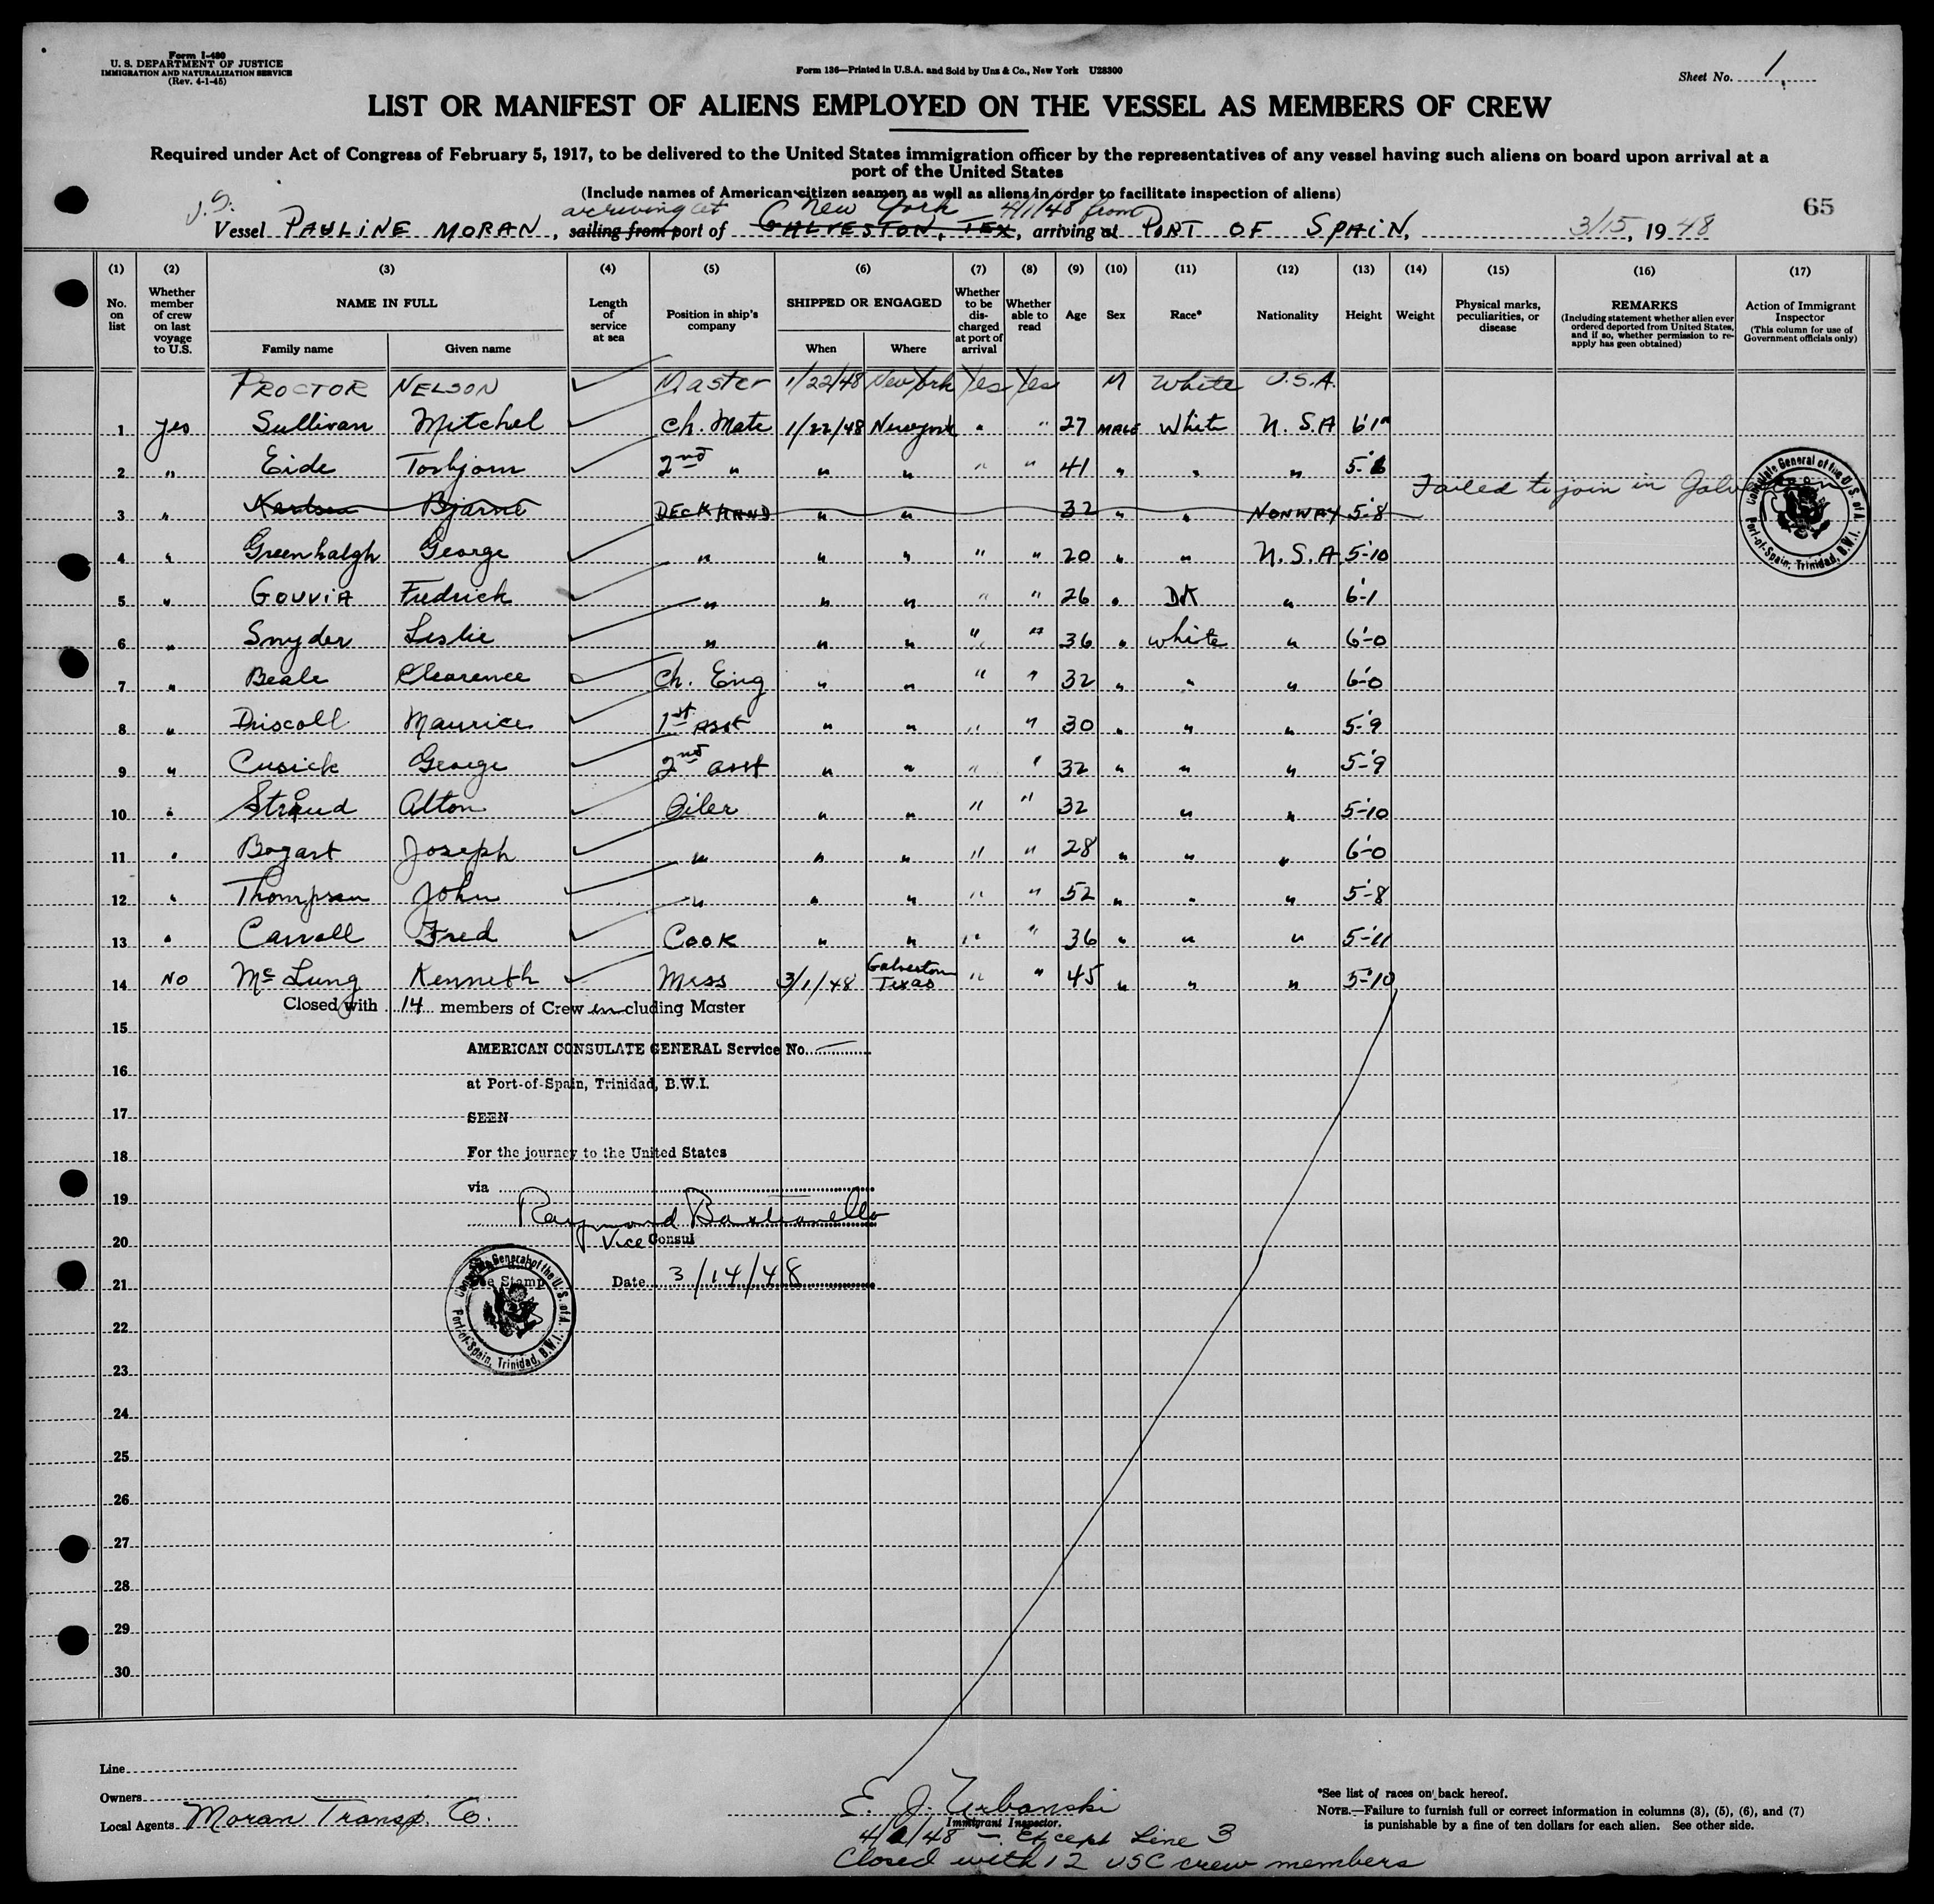 Form I-480
U. S. DEPARTMENT OF JUSTICE
IMMIGRATION AND NATURALIZATION SERVICE
(Rev. 4-1-45)
Form 136—Printed in U.S.A. and Sold by Unz & Co., New York U28300
Sheet No. 1
LIST OR MANIFEST OF ALIENS EMPLOYED ON THE VESSEL AS MEMBERS OF CREW
Required under Act of Congress of February 5, 1917, to be delivered to the United States immigration officer by the representatives of any vessel having such aliens on board upon arrival at a
port of the United States
(Include names of American citizen seamen as well as aliens in order to facilitate inspection of aliens)
65
U.S. arriving at New York 4/1/48 from
Vessel PAULINE MORAN, sailing from port of GALVESTON, TEX, arriving at PORT OF SPAIN, 3/15, 1948
(1) (2) (3) (4) (5) (6) (7) (8) (9) (10) (11) (12) (13) (14) (15) (16) (17)
No. on list
Whether member of crew on last voyage to U.S.
NAME IN FULL
Family name Given name
Length of service at sea
Position in ship's company
SHIPPED OR ENGAGED
When Where
Whether to be discharged at port of arrival
Whether able to read
Age Sex Race* Nationality Height Weight
Physical marks, peculiarities, or disease
REMARKS
(Including statement whether alien ever ordered deported from United States, and if so, whether permission to re-apply has geen obtained)
Action of Immigrant Inspector
(This column for use of Government officials only)
PROCTOR NELSON Master 1/22/48 New York Yes Yes M White U.S.A.
1 yes Sullivan Mitchel Ch. Mate 1/22/48 New york " " 27 MALE White U.S.A 6'1"
2 " Eide Torbjorn 2nd " " " " " 41 " " " 5'
Failed to join in Galveston
3 " Bjarne DECKHAND " " 32 " " NORWAY 5'8
4 " Greenhalgh George " " " " " 20 " " U.S.A 5'10
5 " GOUVIA Fredrick " " " " " 26 " " 6'1
6 " Snyder Leslie " " " " " 36 " white " 6'0
7 " Beale Clearence Ch. Eng " " " " 32 " " " 6'0
8 " Driscoll Maurice 1st Asst " " " " 30 " " " 5'9
9 " Cusick George 2nd asst " " " " 32 " " " 5'9
10 " Stroud Alton Oiler " " " " 32 " " 5'10
11 " Bogart Joseph " " " " " 28 " " " 6'0
12 " Thompson John " " " " " 52 " " " 5'8
13 " Carroll Fred COOK " " " " 36 " " " 5'11
14 NO McLung Kenneth Mess 3/1/48 Galveston Texas " " 45 " " " 5'10
Closed with 14 members of Crew including Master
15
AMERICAN CONSULATE GENERAL Service No. —
16
at Port-of-Spain, Trinidad, B.W.I.
17
SEEN
18
For the journey to the United States
19
via
Raymond
20
Vice Consul
21
Fee Stamp
Date 3/14/48
Consulate General of the U.S. of A.
Port-of-Spain, Trinidad, B.W.I.
Consulate General of the U.S. of A.
Port-of-Spain, Trinidad, B.W.I.
22
23
24
25
26
27
28
29
30
Line
Owners
Local Agents Moran Transp. Co.
E. J. Urbanski
Immigrant Inspector.
48 — Except Line 3
Closed with 12 USC crew members
*See list of races on back hereof.
NOTE.—Failure to furnish full or correct information in columns (3), (5), (6), and (7)
is punishable by a fine of ten dollars for each alien. See other side.